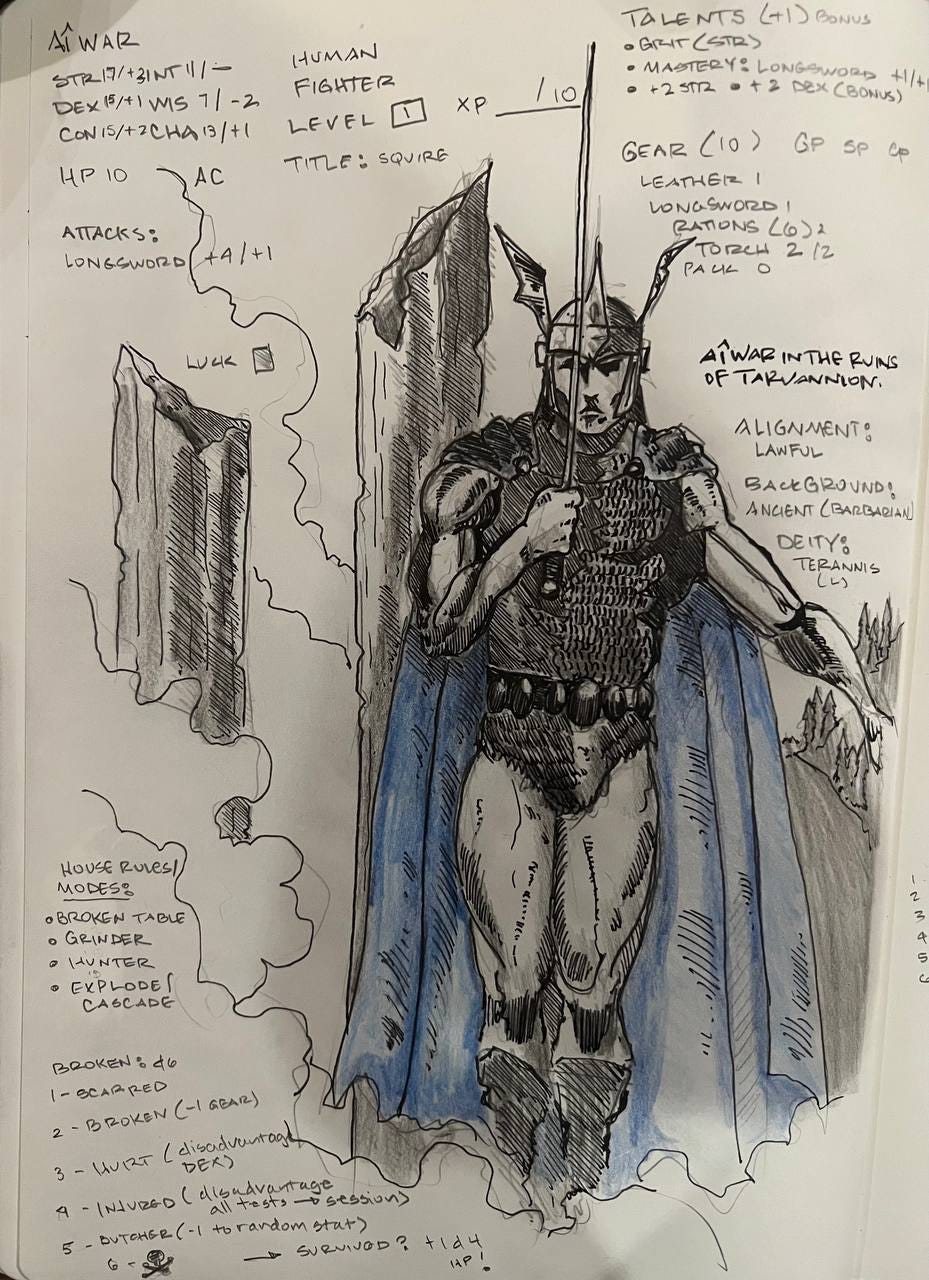 AÎWAR
STR 17/+3 INT 11/-
DEX 15/+1 WIS 7/-2
CON 15/+2 CHA 13/+1
HP 10 AC
ATTACKS:
LONGSWORD +4/+1
LUCK
HUMAN
FIGHTER
LEVEL 1 XP /10
TITLE: SQUIRE
TALENTS (+1) BONUS
• GRIT (STR)
• MASTERY: LONGSWORD +1/+1
• +2 STR • +2 DEX (BONUS)
GEAR (10) GP SP CP
LEATHER 1
LONGSWORD 1
RATIONS (6) 2
TORCH 2/2
PACK 0
AÎWAR IN THE RUINS
OF TARVANNION.
ALIGNMENT:
LAWFUL
BACKGROUND:
ANCIENT (BARBARIAN)
DEITY:
TERANNIS
(L)
HOUSE RULES/
MODES:
• BROKEN TABLE
• GRINDER
• HUNTER
• EXPLODE/
CASCADE
BROKEN: d6
1 - SCARRED
2 - BROKEN (-1 GEAR)
3 - HURT (disadvantage
DEX)
4 - INJURED (disadvantage
all tests → session)
5 - BUTCHER (-1 to random stat)
6 - → SURVIVED? +1d4
HP!
1.
2
3
4
5
6